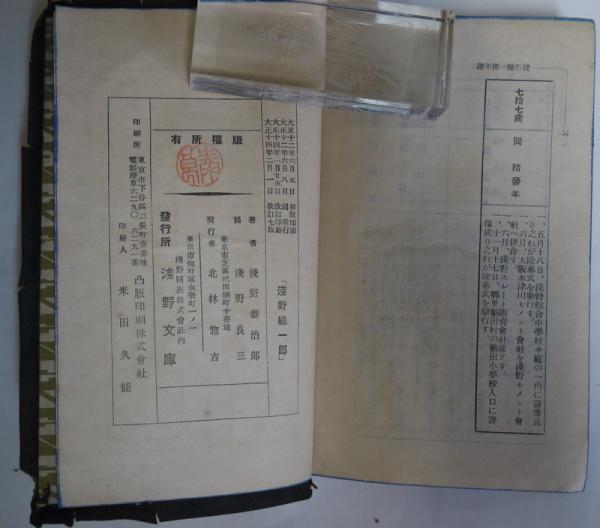 淺野總一郎年譜
七拾七歳
同 拾參年
、五月十八日、淺野綜合中學校々庭の一角に壽像成
り之れが除幕式を擧行す。
、六月、大阪木津川セメント會社を淺野セメント會
社へ併合す。
、六月、淺野スレート販賣會社成立す。
、十一月十七日、郷里藪田村の藪田小學校入口に壽
像成り之れが除幕式を擧行す。
大正十二年六月五日 初版印刷
大正十二年六月八日 同發行
大正十四年一月廿五日 改訂印刷
大正十四年二月一日 改訂七版
版權所有
「淺野總一郎」
著者 淺野泰治郎
同 淺野良三
東京市芝區三田綱町十番地
發行者 北林惣吉
東京市麹町區永樂町一ノ一
淺野同族株式會社內
發行所 淺野文庫
印刷所 東京市下谷區二長町壹番地 凸版印刷株式會社
電話淺草六二九〇 六二九一番
印刷人 米田久能